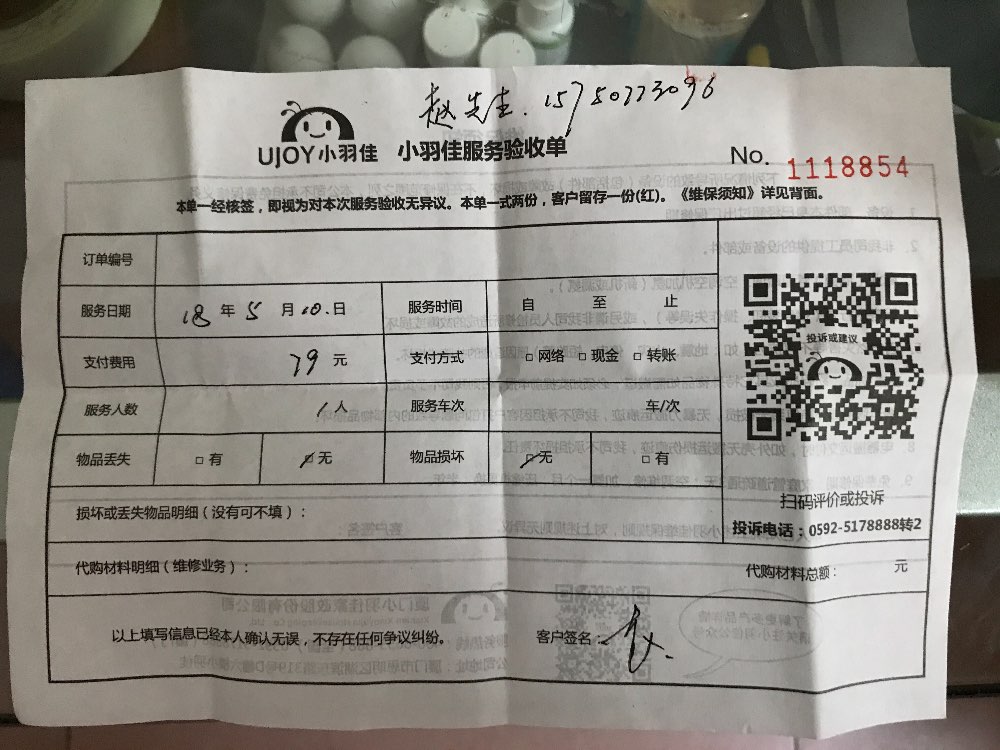 赵先生. 15750223096
UJOY小羽佳 小羽佳服务验收单
No. 1118854
本单一经核签，即视为对本次服务验收无异议。本单一式两份，客户留存一份(红)。《维保须知》详见背面。
订单编号
服务日期 18年5月10.日 服务时间 自 至 止
支付费用 79元 支付方式 □网络 □现金 □转账
服务人数 1人 服务车次 车/次
物品丢失 □有 ☑无 物品损坏 ☑无 □有
投诉或建议
扫码评价或投诉
投诉电话：0592-5178888转2
损坏或丢失物品明细（没有可不填）：
代购材料明细（维修业务）： 代购材料总额： 元
以上填写信息已经本人确认无误，不存在任何争议纠纷。 客户签名：